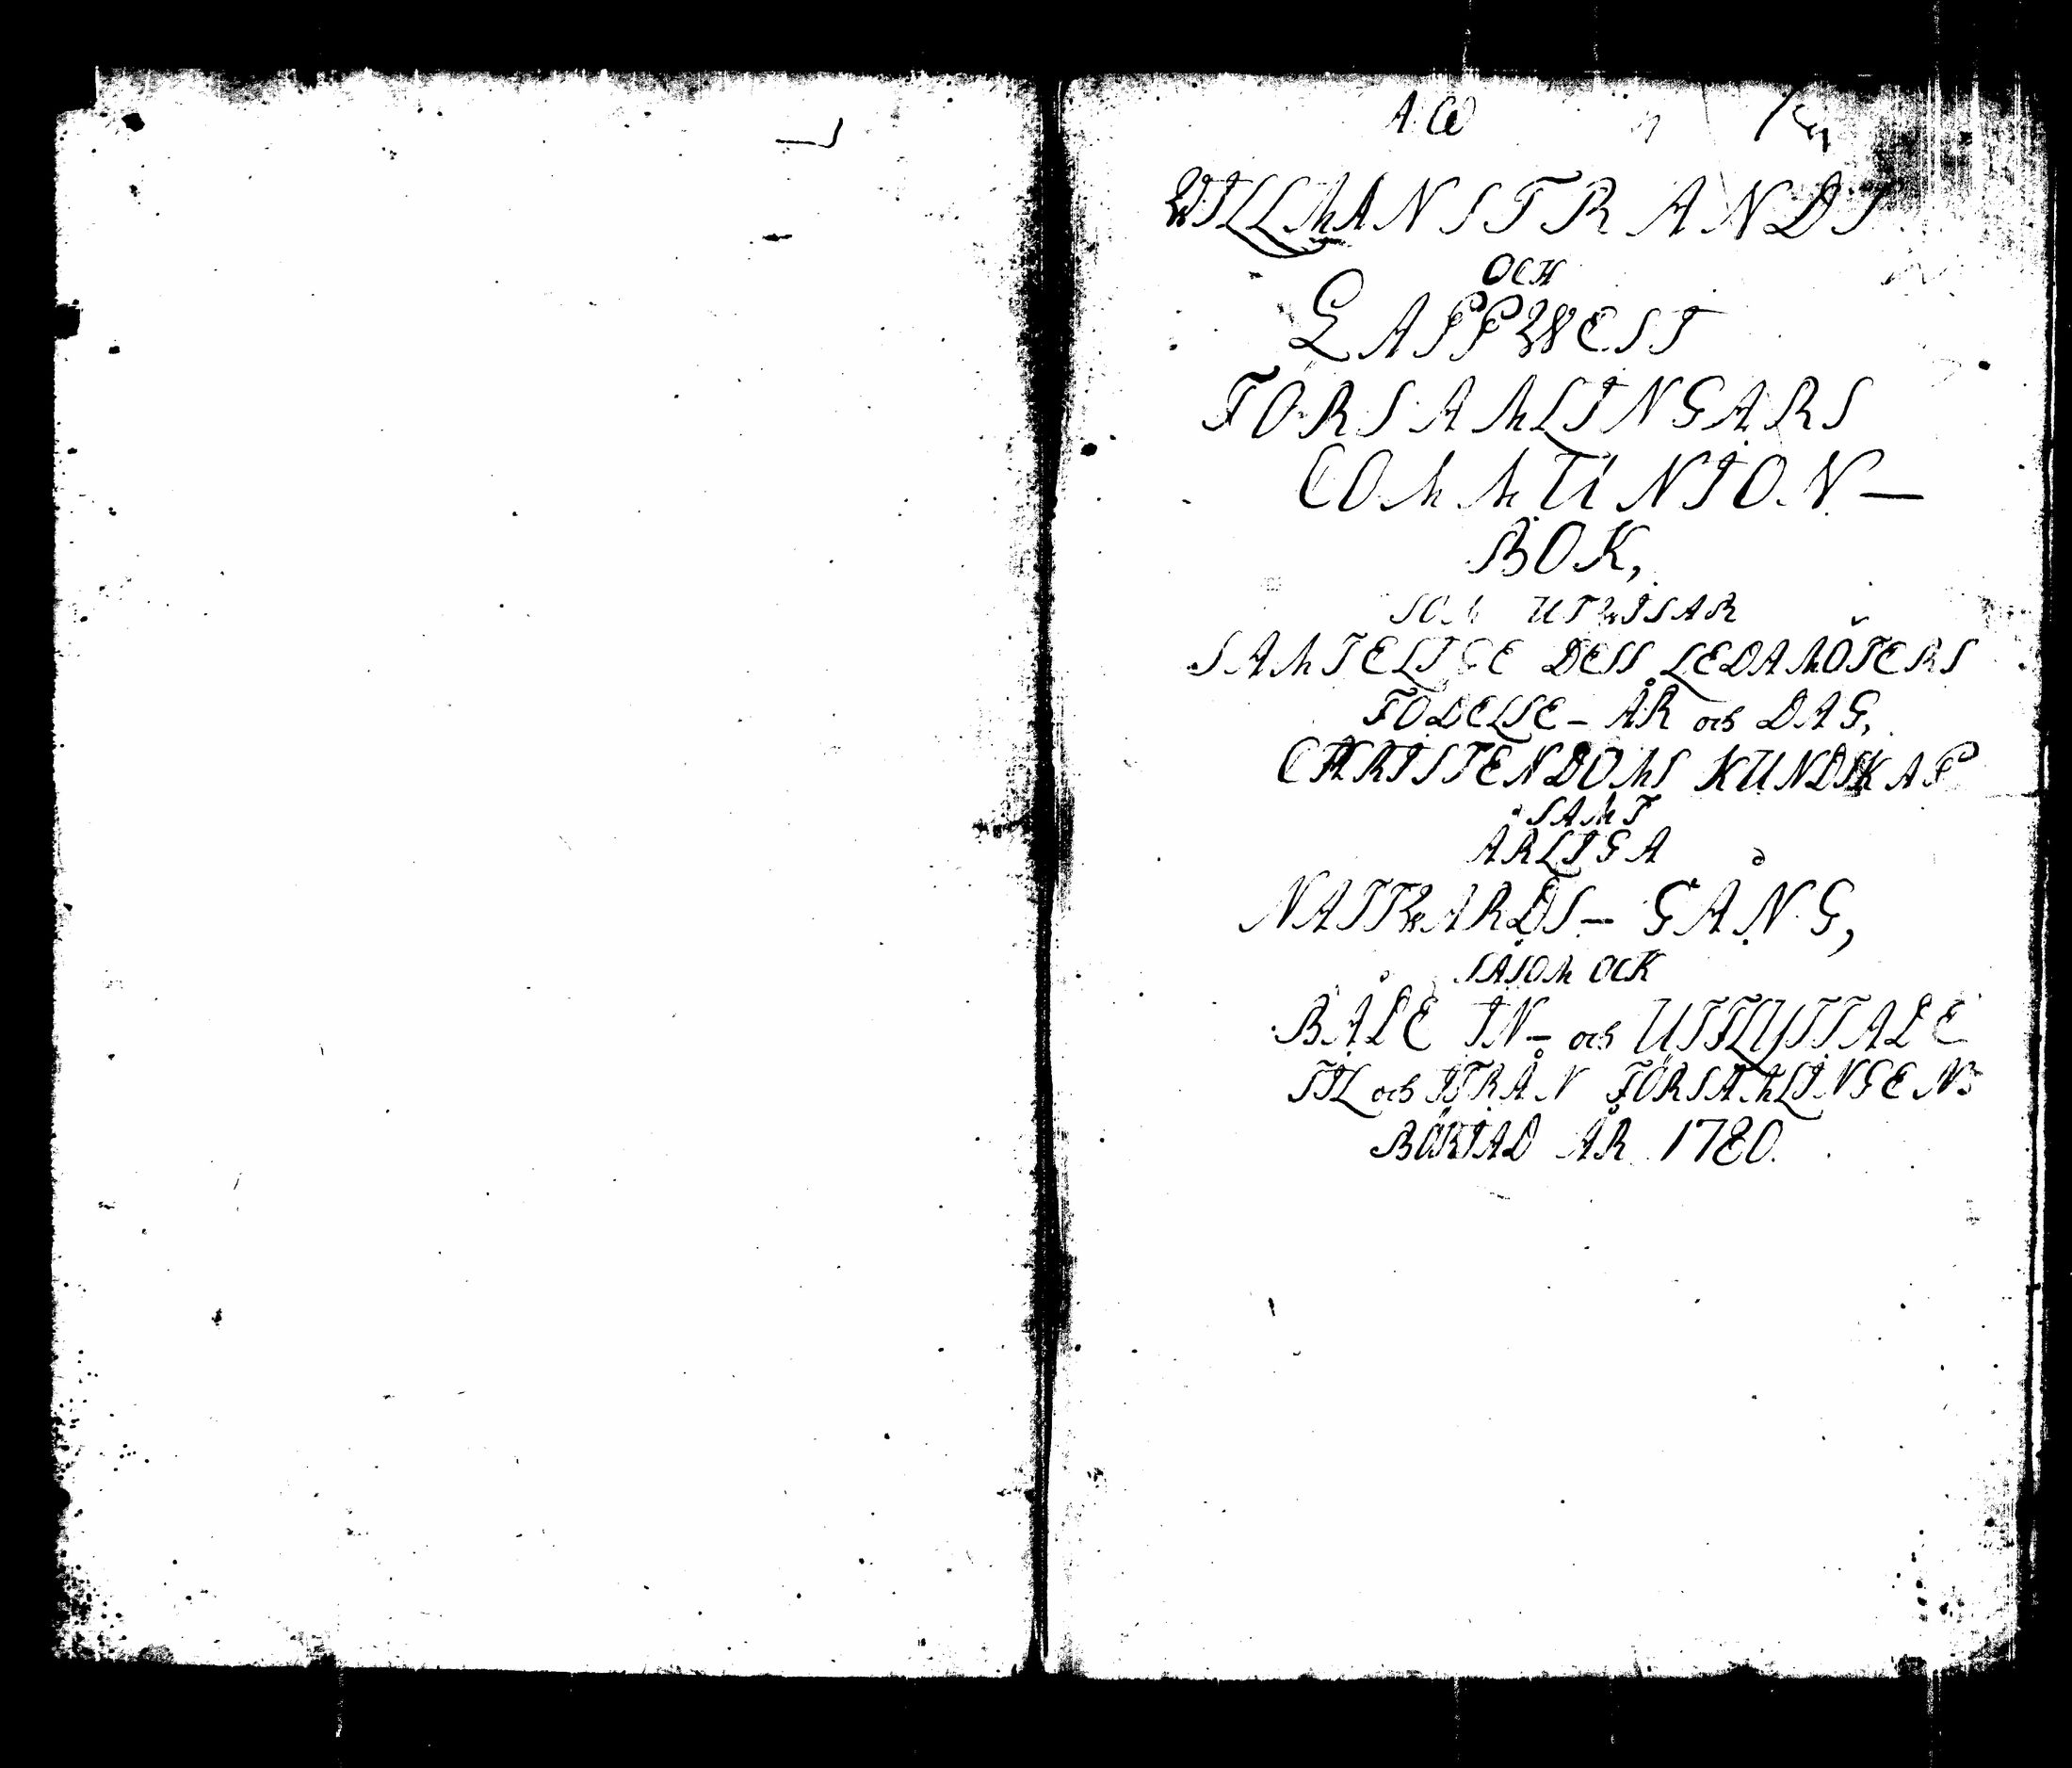 WILLMANSTRANDS
OCH
LAPPWESI
FÖRSAMLINGARS
COMMUNION-
BOK,
SOM UTWISAR
SAMTELIGE DESS LEDAMÖTERS
FÖDELSE-ÅR och DAG,
CHRISTENDOMS KUNDSKAP
SAMT
ÅRLIGA
NATTWARDS-GÅNG,
SÅSOM OCK
BÅDE IN- och UTFLYTTADE
TIL och IFRÅN FÖRSAMLINGEN
BÖRIAD ÅR 1780.